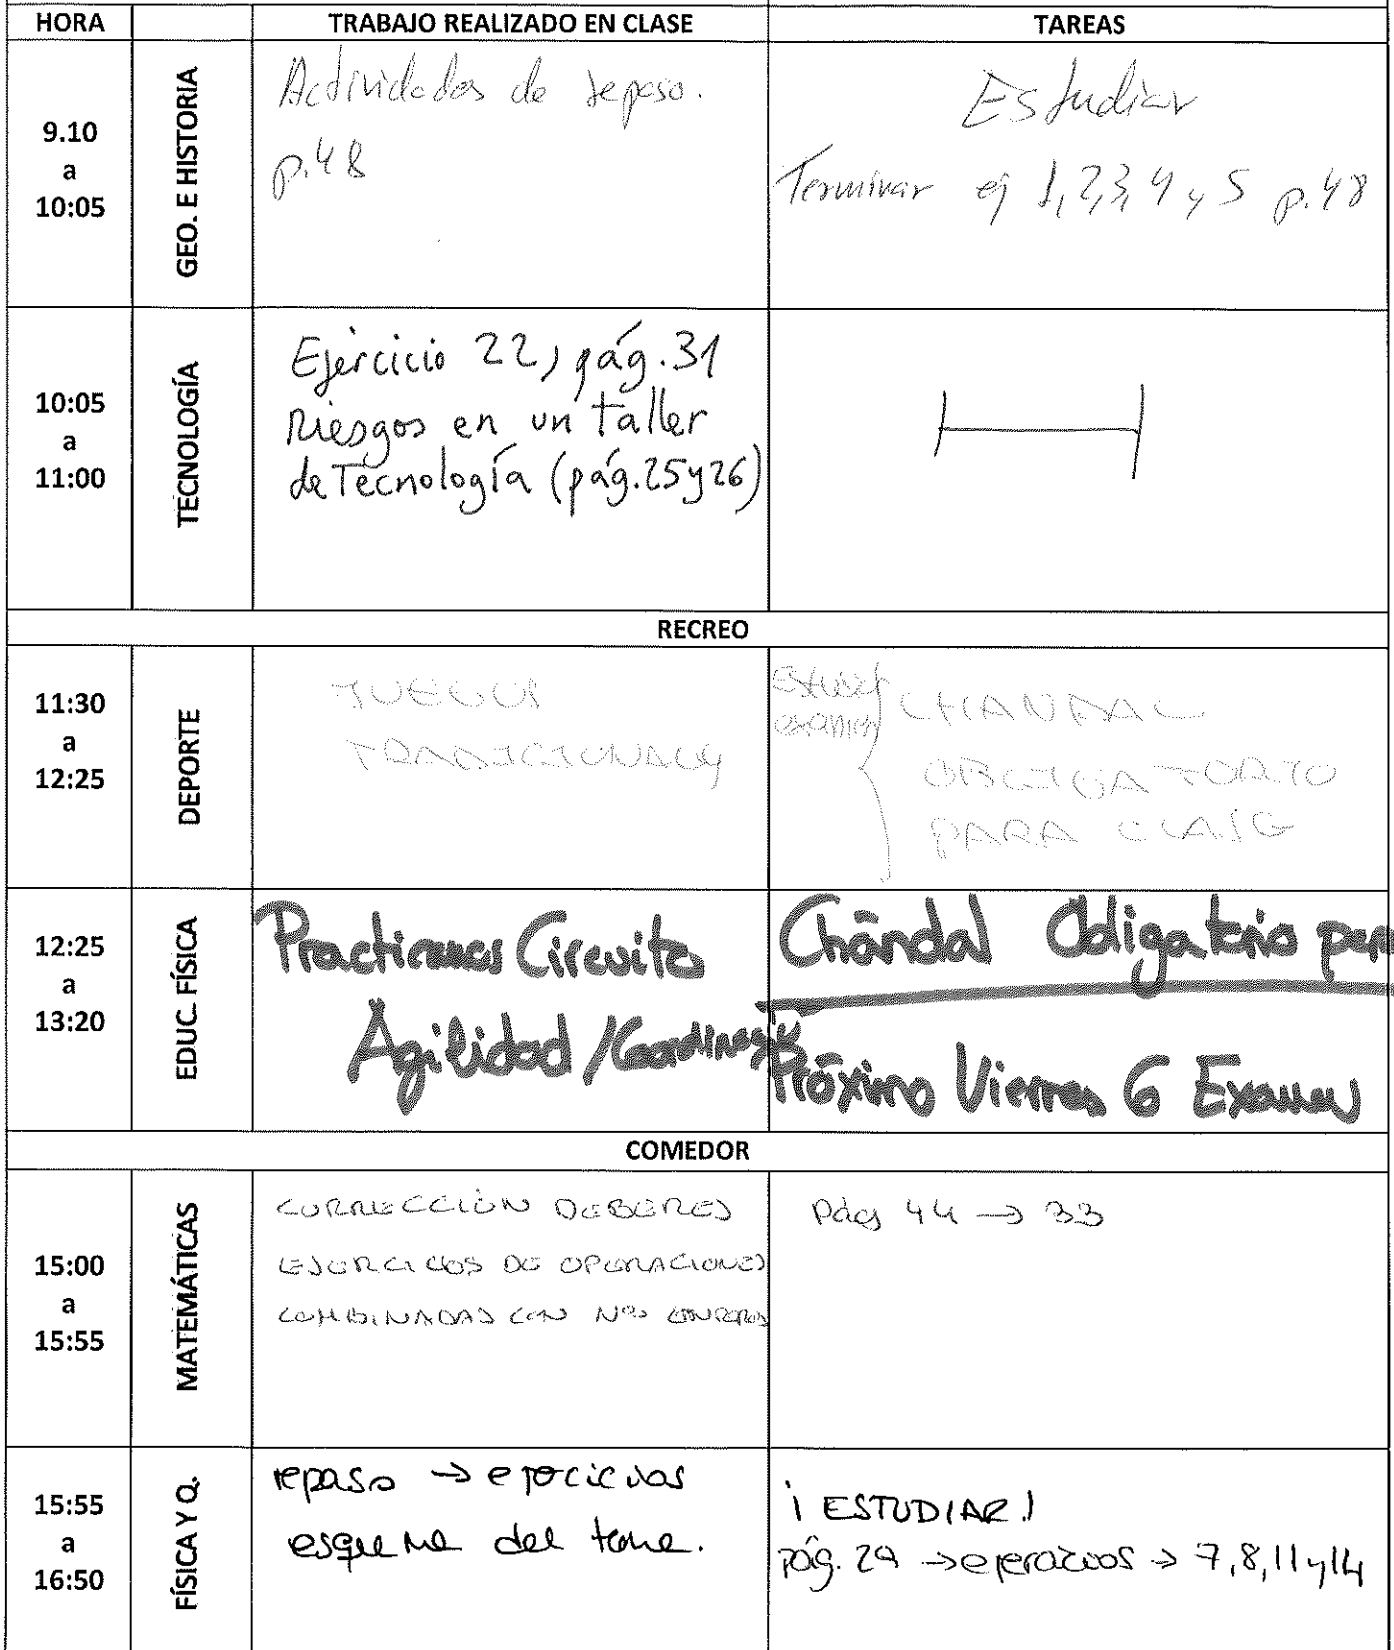 HORA TRABAJO REALIZADO EN CLASE TAREAS
9.10
a
10:05
GEO. E HISTORIA
Actividades de repaso.
p.48
Estudiar
Terminar ej 1,2,3,4 y 5 p.48
10:05
a
11:00
TECNOLOGÍA
Ejercicio 22, pág.31
Riesgos en un taller
de Tecnología (pág.25y26)
RECREO
11:30
a
12:25
DEPORTE
JUEGOS
TRADICIONALES
Estudiar
examen
CHANDAL
OBLIGATORIO
PARA CLASE
12:25
a
13:20
EDUC. FÍSICA
Practicamos Circuito
Agilidad /
Chándal Obligatorio para
Próximo Viernes 6 Examen
COMEDOR
15:00
a
15:55
MATEMÁTICAS
CORRECCIÓN DEBERES
EJERCICIOS DE OPERACIONES
COMBINADAS CON Nos ENTEROS
Pág 44 → 33
15:55
a
16:50
FÍSICA Y Q.
repaso → ejercicios
esquema del tema.
¡ESTUDIAR!
pág. 29 → ejercicios → 7,8,11 y 14